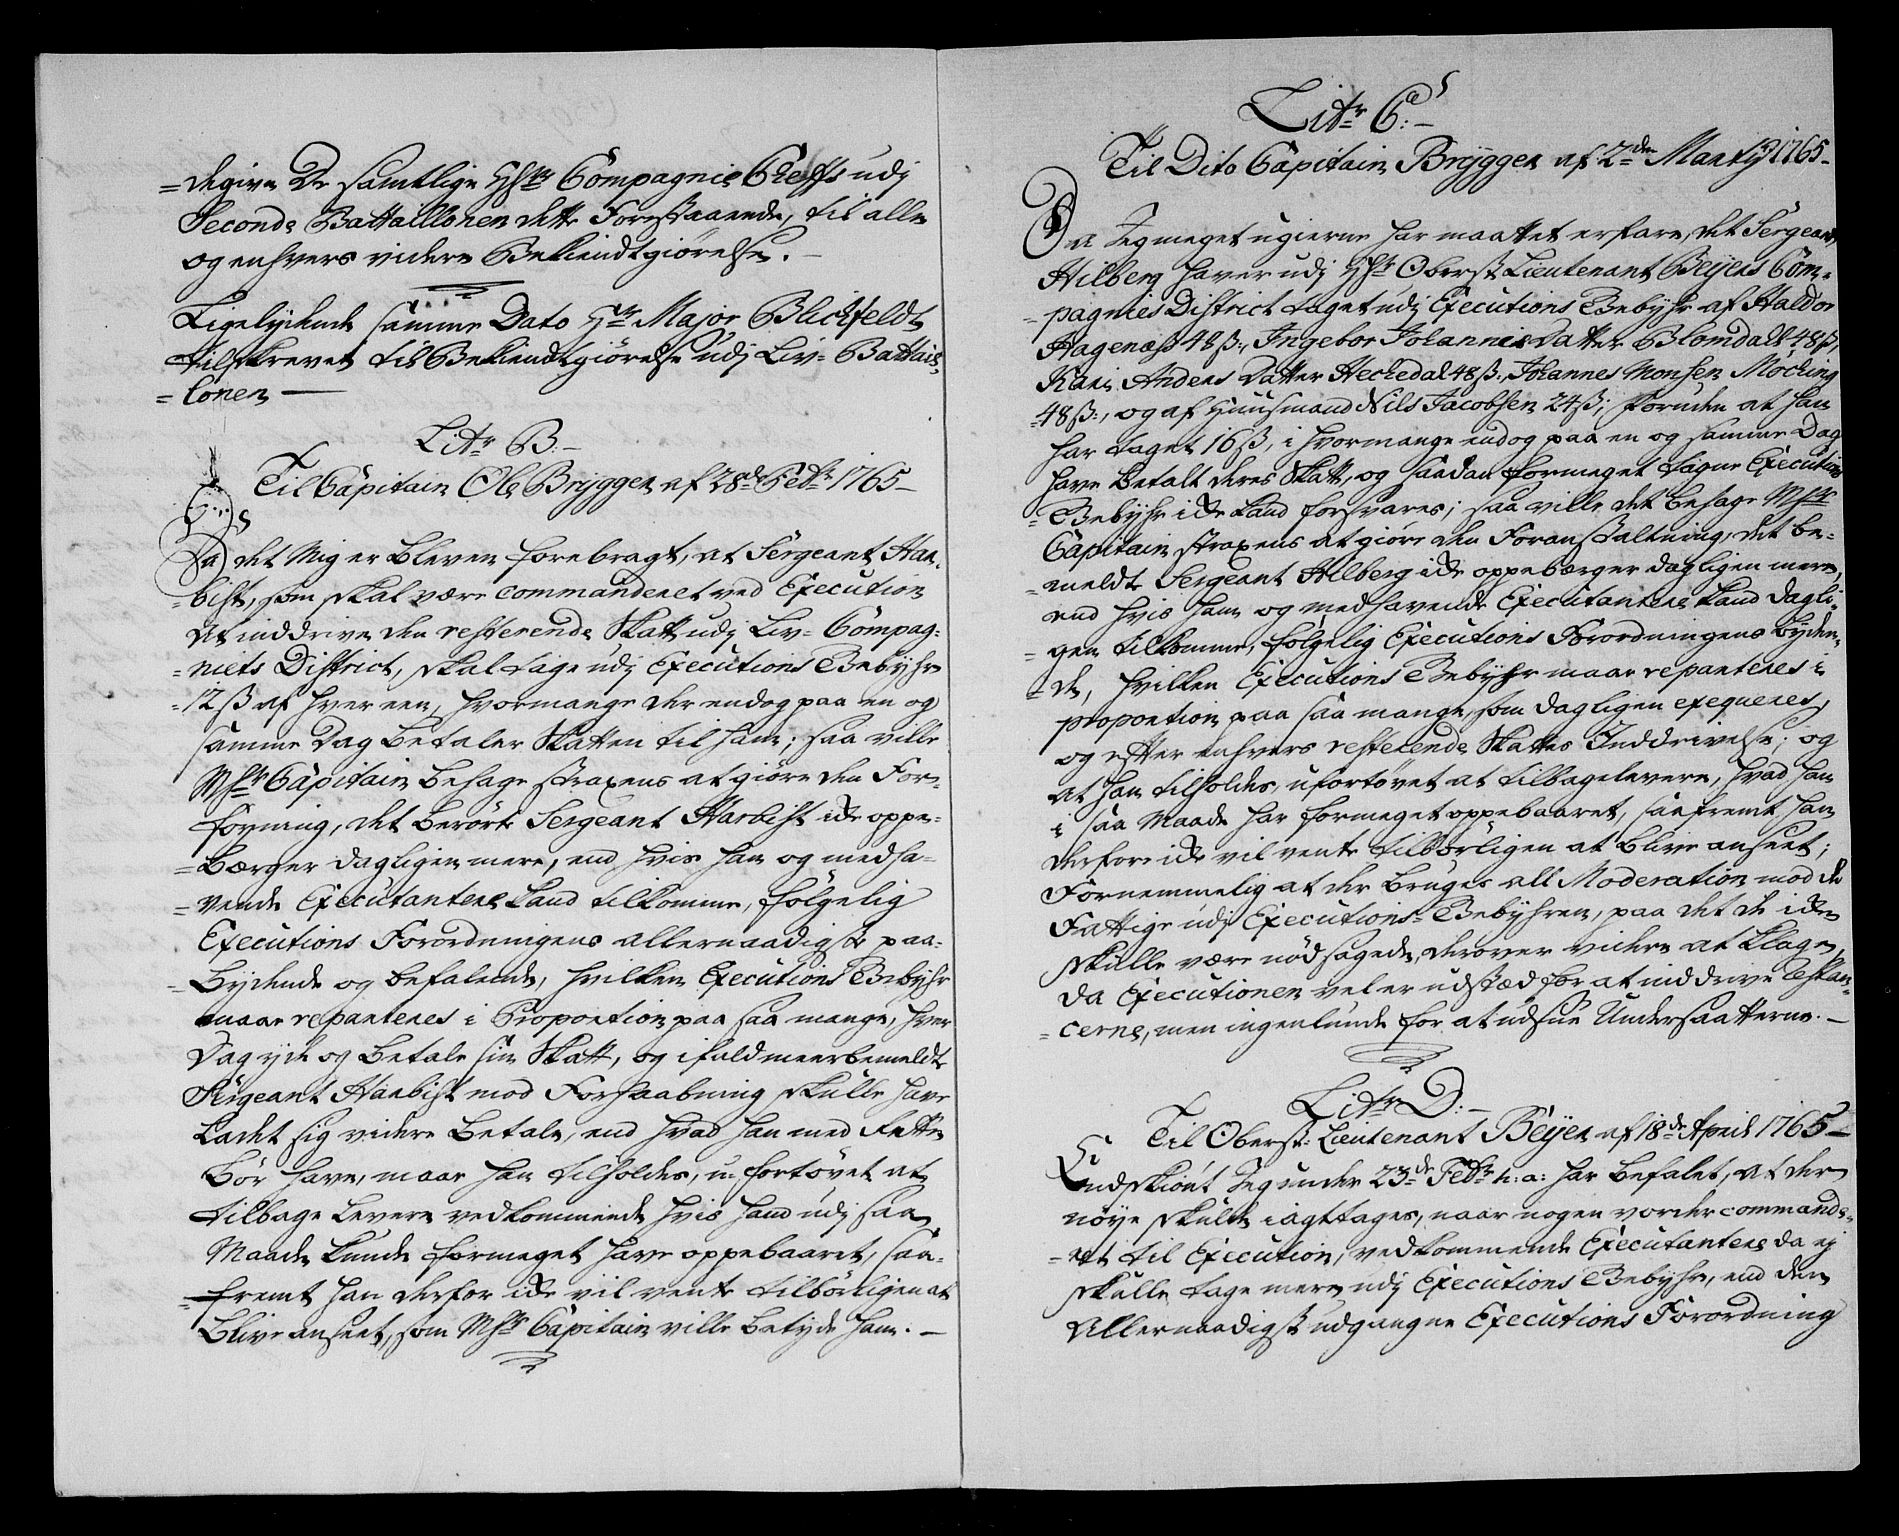 =degive De samtlige HHrr Compagnie Cheffs udj
Seconde Battaillonen dette Forestaaende, til alle
og enhvers videre Bekiendtgiørelse. –
Ligelydende samme Dato Hr Major Blichfeldt
tilskrevet til Bekiendtgiørelse udj Liv= Battail=
=lonen —
Litr B: –
Til Capitain Ole Brygger af 28de Febr 1765 –
Da det Mig er bleven forebragt, at Sergeant Har=
=bist, som skal være commanderet ved Execution
at inddrive den resterende Skatt udj Liv= Compag=
=niets District, skal tage udj Executions Gebyhr
=12 ß af hver een, hvormange der endog paa en og
samme Dag betaler Skatten til ham; saa ville
MHr Capitain behage straxens at giøre den For=
føyning, det berørte Sergeant Harbist icke oppe=
=bærger dagligen mere, end hvis ham og medha=
=vende Executantere kand tilkomme, følgelig
Executions Forordningens allernaadigste paa=
=bydende og befalende, hvilken Executions Gebyhr
maae reparteres i Proportion paa saa mange, hver
Dag yde og betale sin Skatt, og ifald meerbemeldte
Sergeant Harbist mod Forhaabning skulle have
ladet sig videre betale, end hvad han med Rette
bør have, maae han tilholdes, u=fortøvet at
tilbage levere vedkommende hvis hand udj saa
Maade kunde formeget have oppebaaret, saa=
=fremt han derfor icke vil vente tilbørligen at
blive anseet, som MHr Capitain ville betyde ham. –
Litr C: –
Til Dito Capitain Brygger af 2den Marty 1765 –
Da Jeg meget ugierne har maattet erfare, det Sergeant
Hilberg haver udj Hr Oberst Lieutenant Beijers Com=
=pagnies District taget udj Executions Gebyhr af Haldor
Hagenæs 48 ß:, Ingebor Johannes Datter Blomdall 48 ß,
Kari Anders Datter Heckedal 48 ß:, Johannes Monsen Møching
=48 ß:, og af Huusmand Nils Jacobsen 24 ß; foruden at han
har taget 16 ß, i hvormange endog paa en og samme Dag
have betalt deres Skatt, og saadan formeget tagne Executions
=Gebyhr icke kand forsvares; saa ville det behage MHr
Capitain straxens at giøre den Foranstaltning, det be=
=meldte Sergeant Hilberg icke oppebærger dagligen mere,
end hvis ham og medhavende Executantere kand dagli=
=gen tilkomme, følgelig Executions Forordningens byden=
=de, hvilken Executions Gebyhr maae reparteres i
proportion paa saa mange, som dagligen exequeres,
og efter enhvers resterende Skattes Inddrivelse; og
at han tilholdes, ufortøvet at tilbagelevere, hvad han
i saa Maade har formeget oppebaaret, saafremt han
derfore icke vil vente tilbørligen at blive anseet;
Fornemmelig at der bruges all Moderation mod de
Fattige udj Executions=Gebyhren, paa det de icke
skulle være nødsagede, derover videre at klage,
da Executionen vel er udstæd for at inddrive Restan=
=cerne, men ingenlunde for at udsue Undersaatterne. –
Litr D: –
Til Oberst: Lieutenant Beijer af 18de April 1765 –
Endskiønt Jeg under 23de Febr h: a: har befalet, at der
nøye skulde iagttages, naar nogen vorder commande=
=ret til Execution, vedkommende Executantere da ej
skulle tage mere udj Executions Gebyhr, end den
Allernaadigst udgangne Executions Forordning